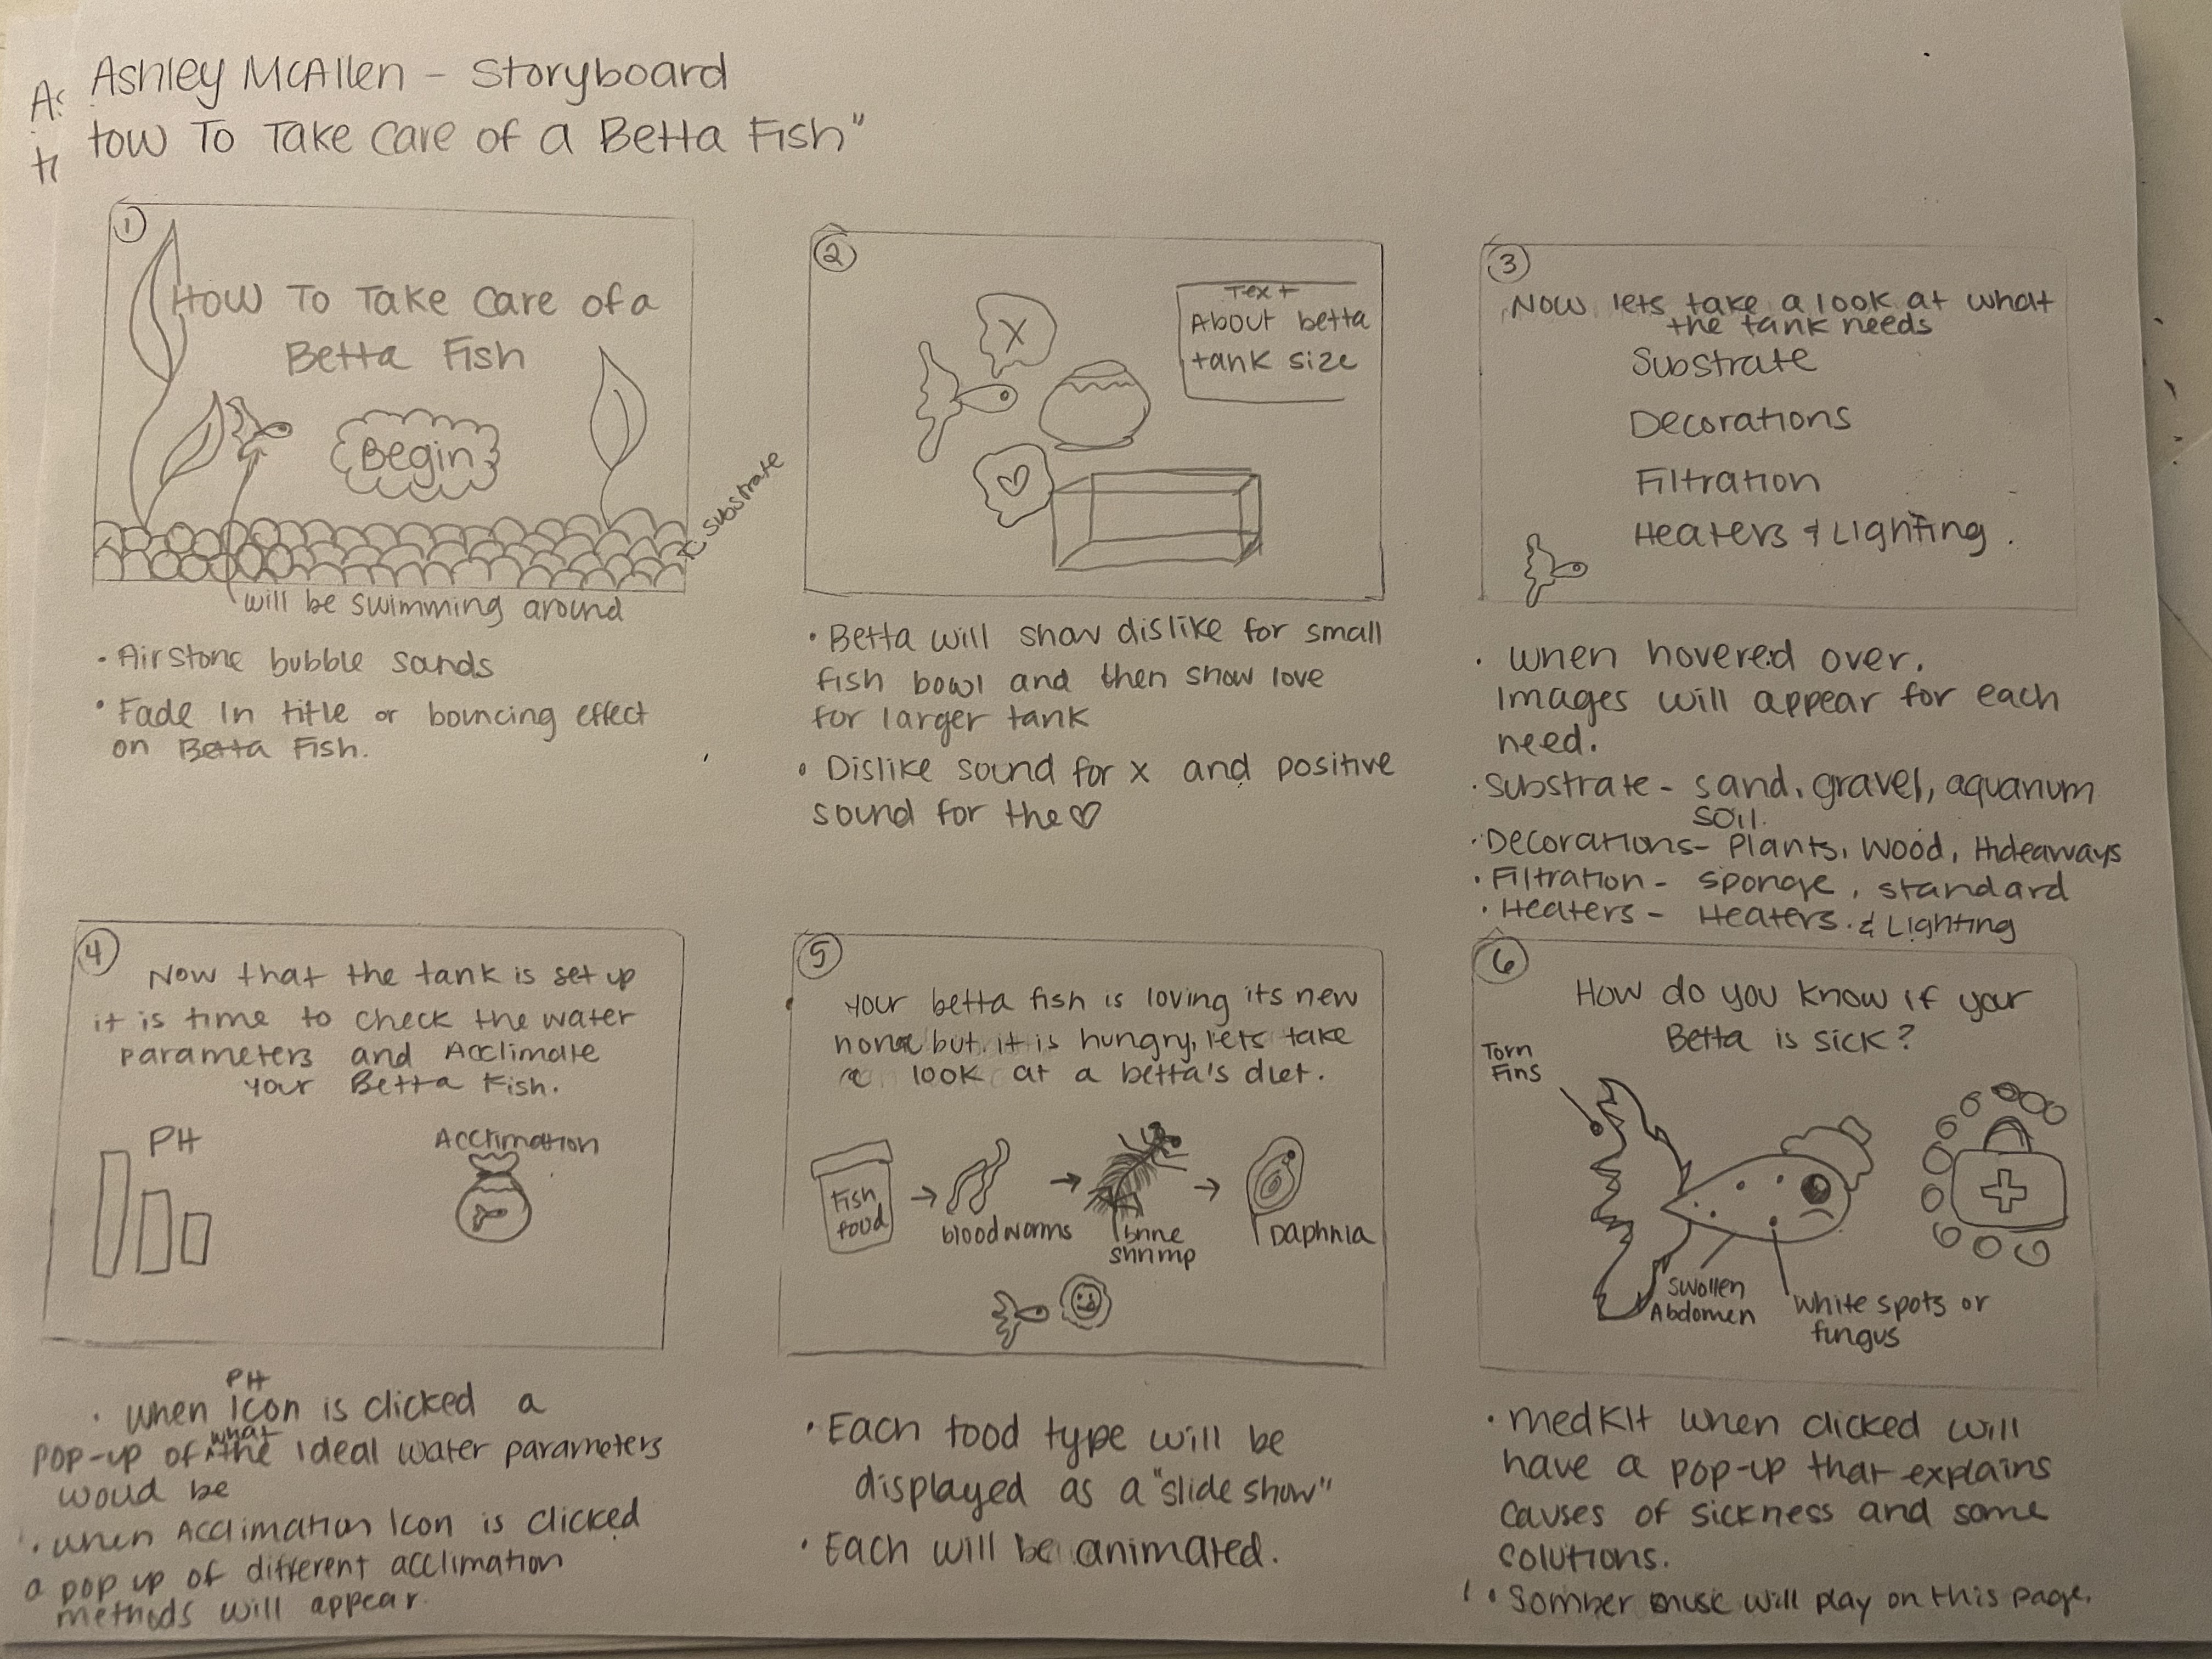 As
Ashley McAllen - Storyboard
tow To Take Care of a Betta Fish"
1
How To Take Care of a
Betta Fish
Begin
Substrate
will be swimming around
• Airstone bubble sands
• Fade In title or bouncing effect
on Betta Fish.
2
Text
About betta
tank size
X
• Betta will show dislike for small
fish bowl and then show love
for larger tank
• Dislike sound for x and positive
sound for the ♡
3
Now lets take a look at what
the tank needs
Substrate
Decorations
Filtration
Heaters & Lighting.
• when hovered over.
Images will appear for each
need.
• Substrate - sand, gravel, aquarium
soil.
• Decorations - Plants, Wood, Hideaways
• Filtration - sponge, standard
• Heaters - Heaters. & Lighting
4
Now that the tank is set up
it is time to check the water
parameters and Acclimate
your Betta Fish.
PH
Acclimation
PH
• when Icon is clicked a
what
pop-up of the ideal water parameters
woud be
• when Acclimation Icon is clicked
a pop up of different acclimation
methods will appear.
5
• Your betta fish is loving its new
home but it is hungry, lets take
a look at a betta's diet.
Fish
food
bloodworms
brine
shrimp
Daphnia
• Each food type will be
displayed as a "slide show"
• Each will be animated.
6
How do you know if your
Betta is sick?
Torn
Fins
Swollen
Abdomen
White spots or
fungus
• medkit when clicked will
have a pop-up that explains
causes of sickness and some
solutions.
• Somber music will play on this page.